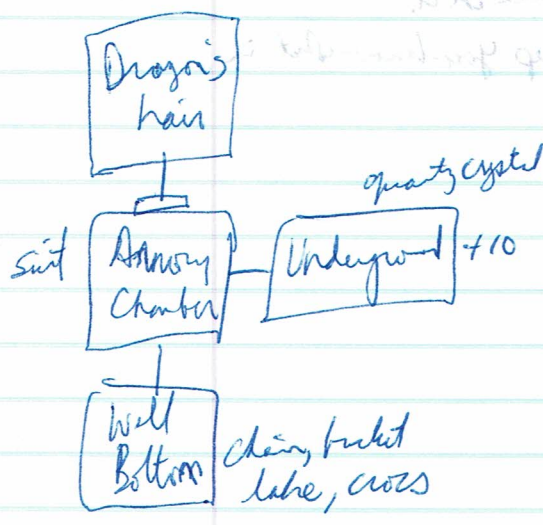 Dragon's
Lair
quartz crystal
suit
Armory
Chamber
Underground
+10
Well
Bottom
chain, bucket
lake, crocs